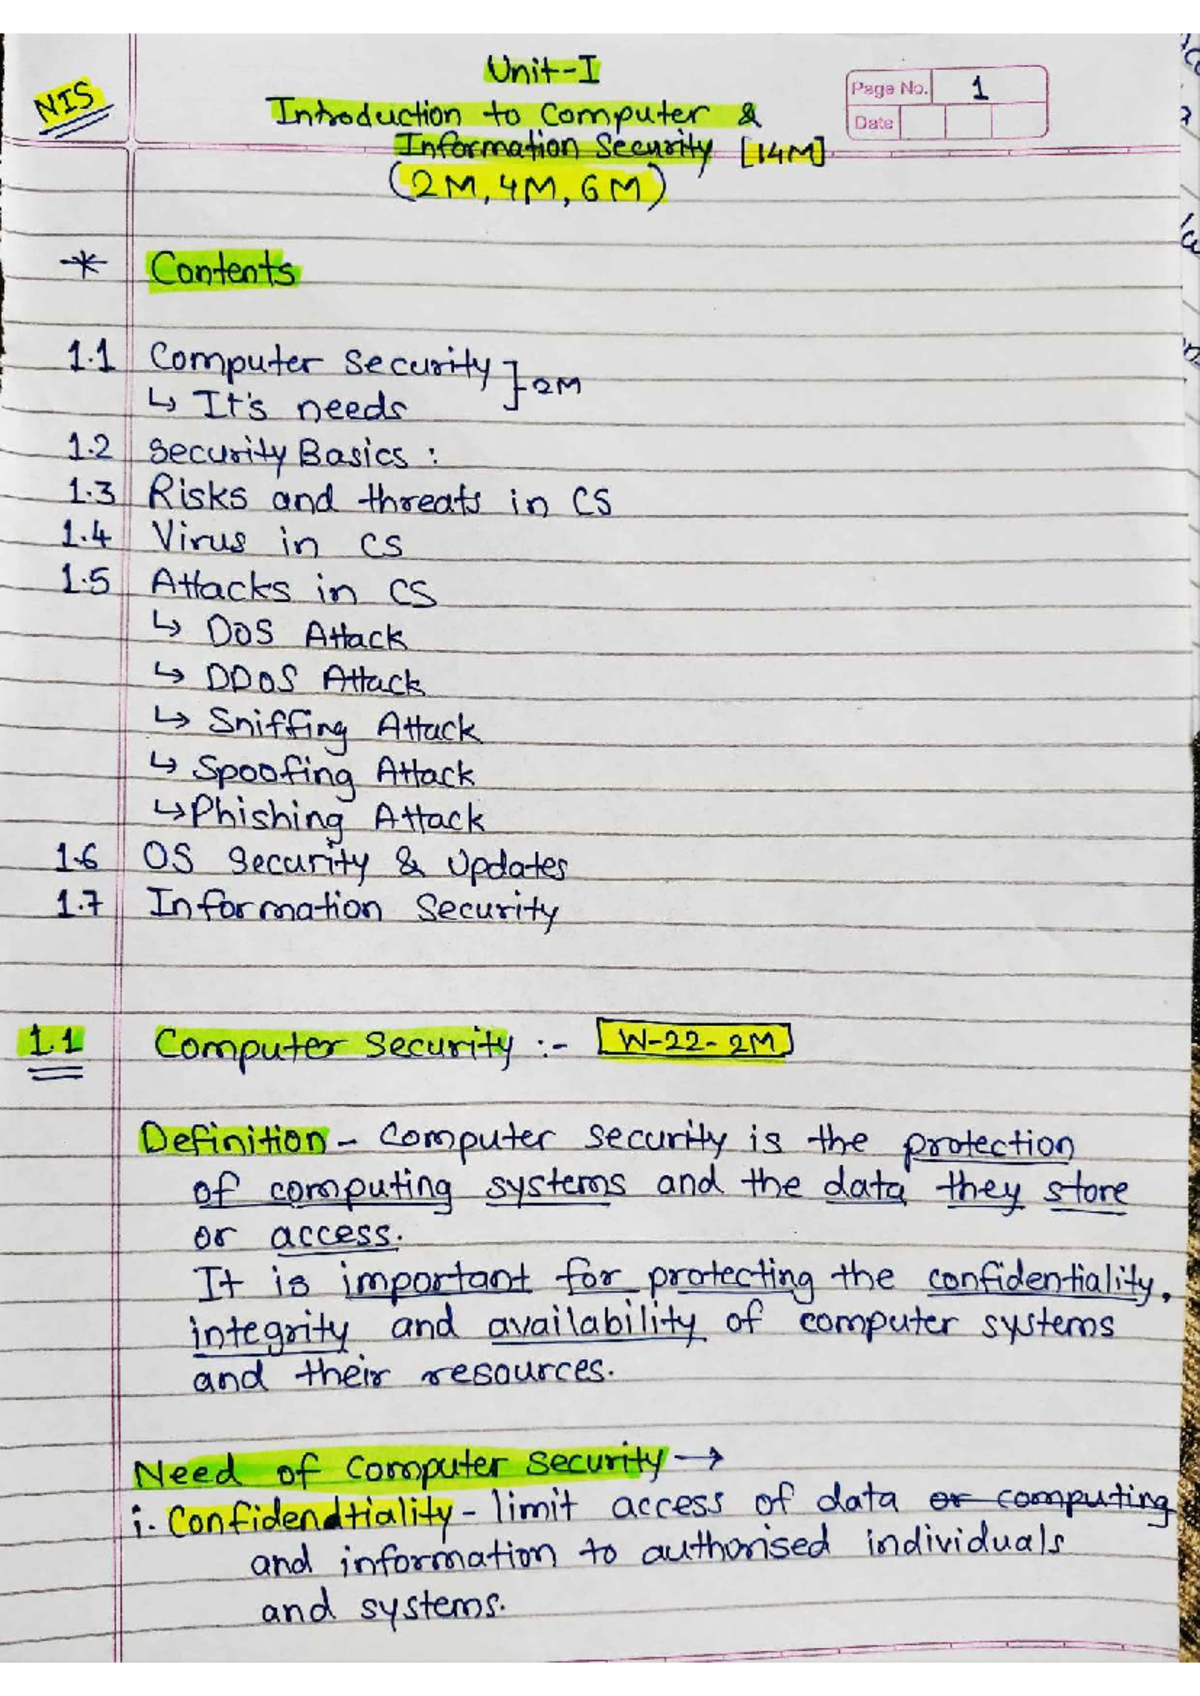 NIS
Unit-I
Page No. 1
Date
Introduction to Computer &
Information Security [14M]
(2M, 4M, 6M)
* Contents
1.1 Computer Security ] 2M
↳ It's needs
1.2 Security Basics :
1.3 Risks and threats in CS
1.4 Virus in CS
1.5 Attacks in CS
↳ DOS Attack
↳ DDOS Attack
↳ Sniffing Attack
↳ Spoofing Attack
↳ Phishing Attack
1.6 OS Security & Updates
1.7 Information Security
1.1 Computer Security :- [W-22-2M]
Definition - Computer security is the protection
of computing systems and the data they store
or access.
It is important for protecting the confidentiality,
integrity and availability of computer systems
and their resources.
Need of Computer Security →
i. Confidendtiality - limit access of data or computing
and information to authorised individuals
and systems.